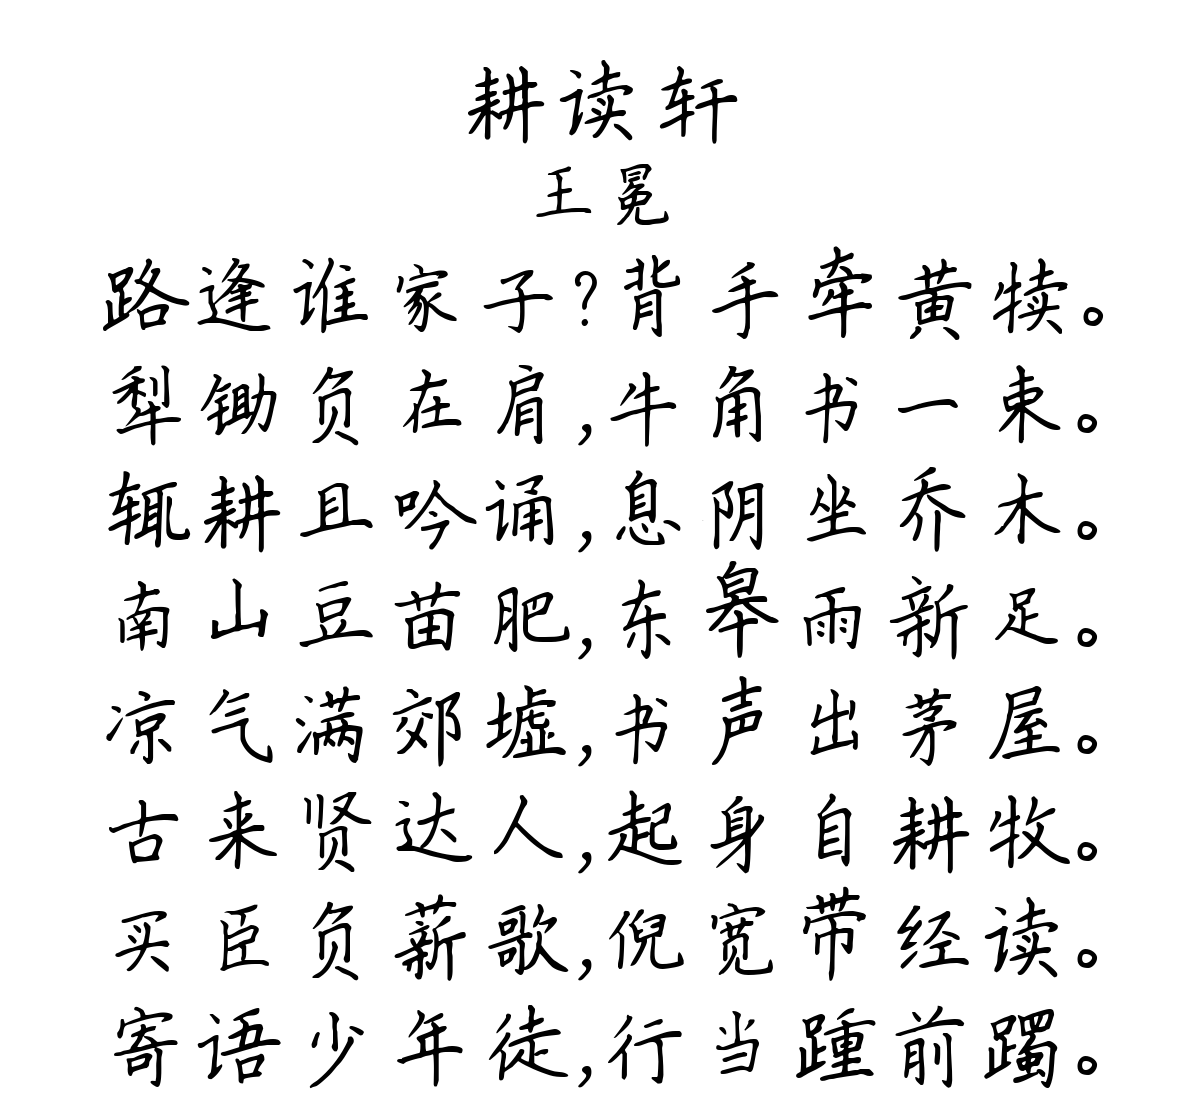 耕读轩
王冕
路逢谁家子?背手牵黄犊。
犁锄负在肩,牛角书一束。
辄耕且吟诵,息阴坐乔木。
南山豆苗肥,东皋雨新足。
凉气满郊墟,书声出茅屋。
古来贤达人,起身自耕牧。
买臣负薪歌,倪宽带经读。
寄语少年徒,行当踵前躅。